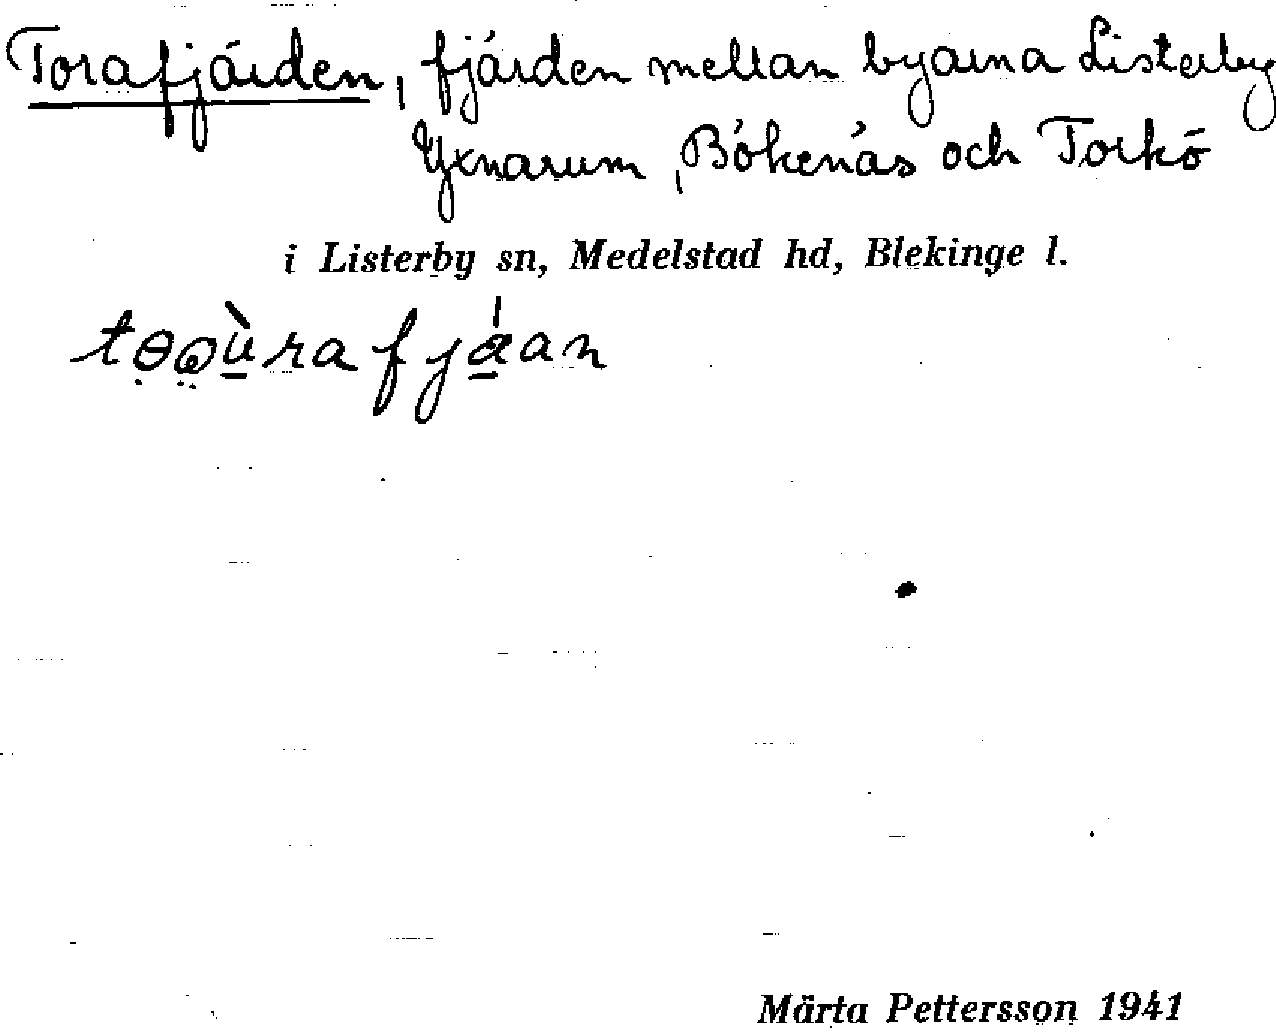 Torafjärden, fjärden mellan byarna Listerby
Yxnarum, Bökenäs och Torkö
i Listerby sn, Medelstad hd, Blekinge l.
Märta Pettersson 1941